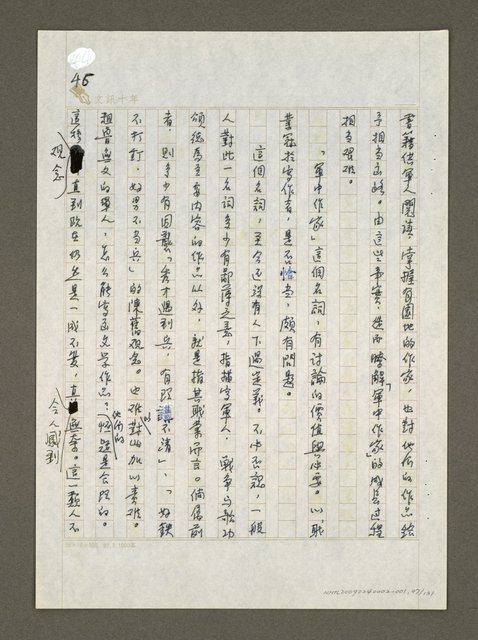 45
文訊十年
書籍供軍人閱讀，掌握有園地的作家，也對他們的作品給
予相當出路。由這些事實，進而瞭解「軍中作家」的成長過程
相當艱難。
「軍中作家」這個名詞，有討論的價值與必要。以職
業冠於寫作者，是否恰當，頗有問題。
這個名詞，至今還沒有人下過定義。不必否認，一般
人對此一名詞多少有鄙薄之意，指描寫軍人、戰爭與歌功
頌德為主要內容的作品以外，就是指其職業而言。倘係前
者，則多少有因襲「秀才遇到兵，有理講不清」、「好鐵
不打釘，好男不當兵」的陳舊觀念。也難對以加以責難。
粗魯無文的軍人，怎麼能寫出文學作品？他們的
這種觀念直到現在仍然是一成不變，真令人感到無奈。這一類人不
NMTL20090240002-001, 47/131